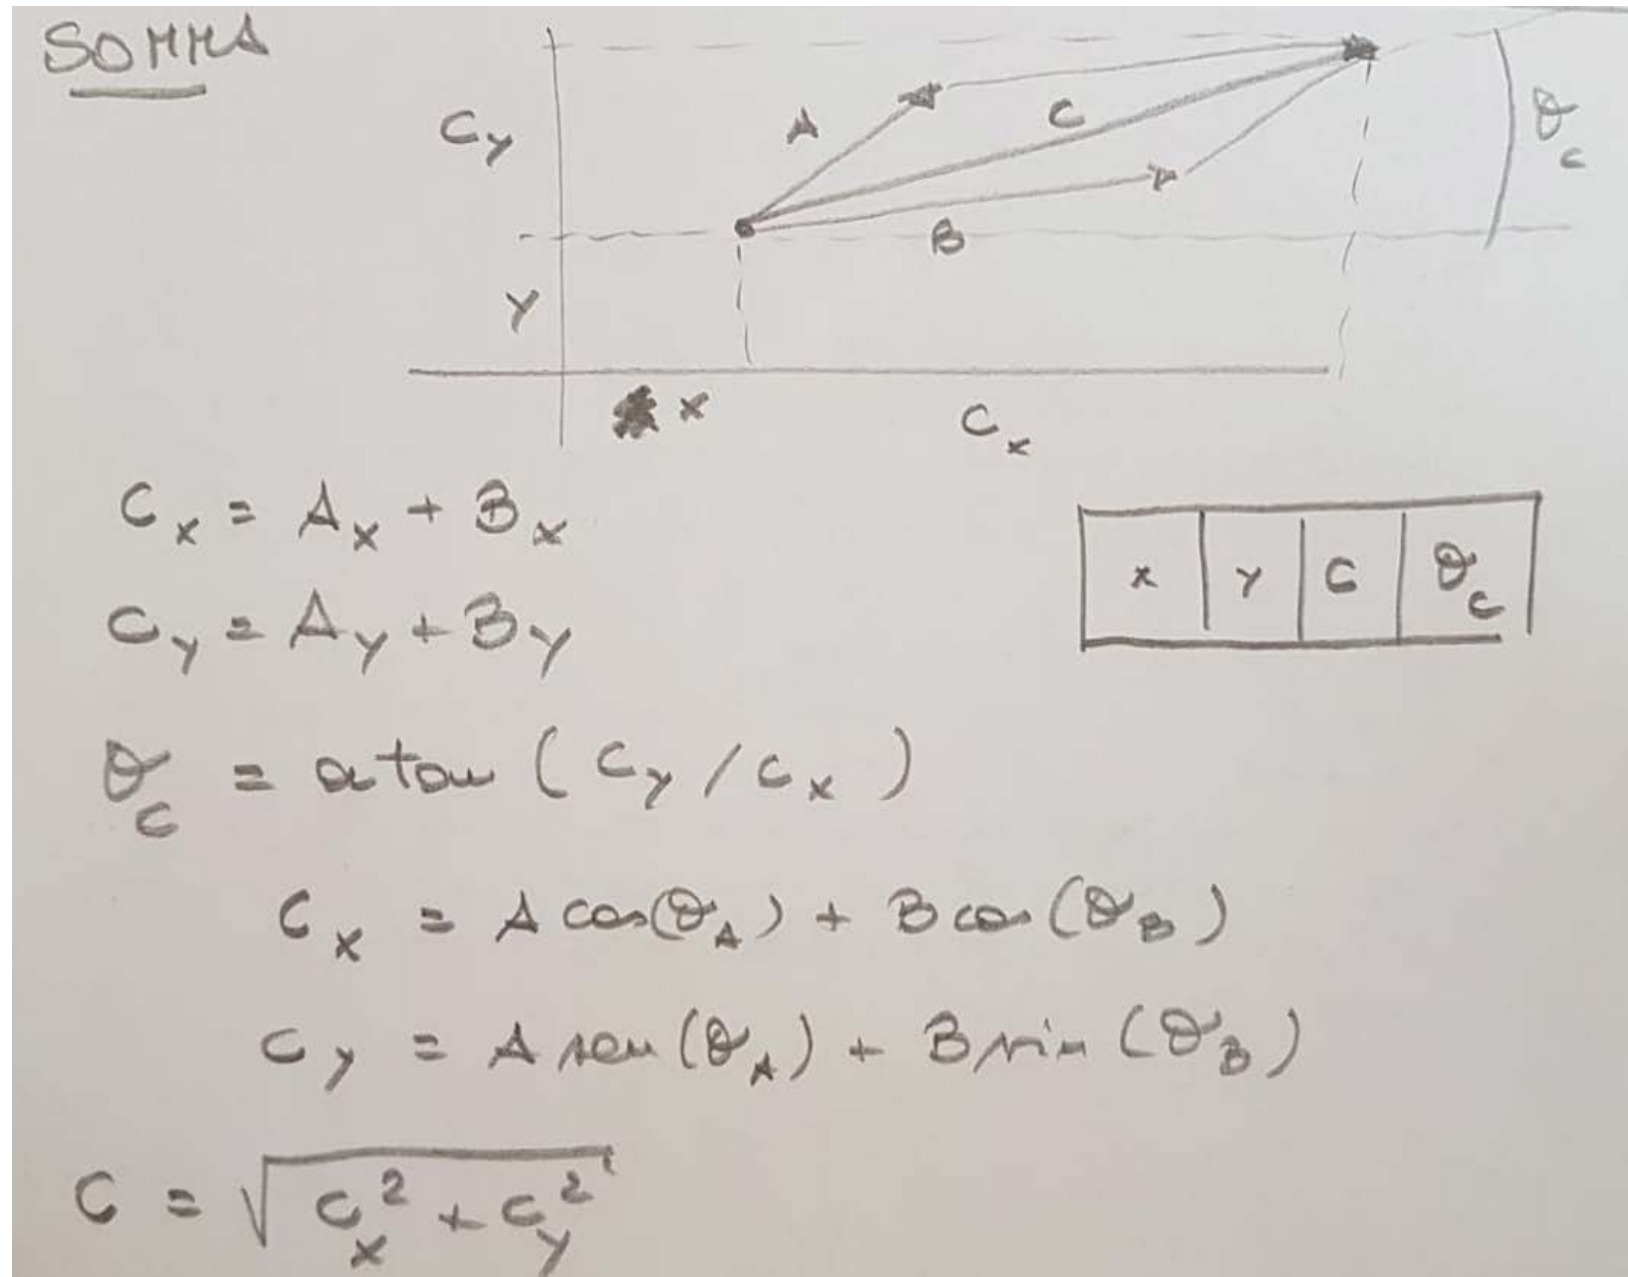 SOMMA
C_y
A
C
θ_c
B
y
x
C_x
C_x = A_x + B_x
x | y | C | θ_c
C_y = A_y + B_y
θ_c = atan (C_y / C_x)
C_x = A cos(θ_A) + B cos (θ_B)
C_y = A sen (θ_A) + B sin (θ_B)
C = √(C_x² + C_y²)